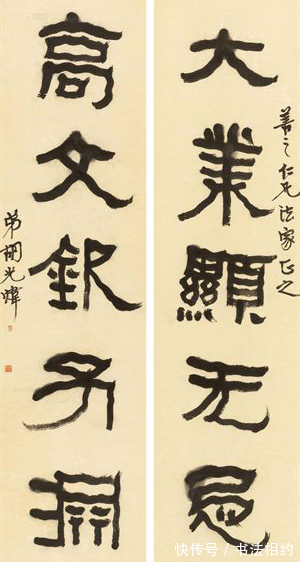 大業顯无忌
善之仁兄法家正之
高文子淵
弟胡光煒
快传号/书法相约